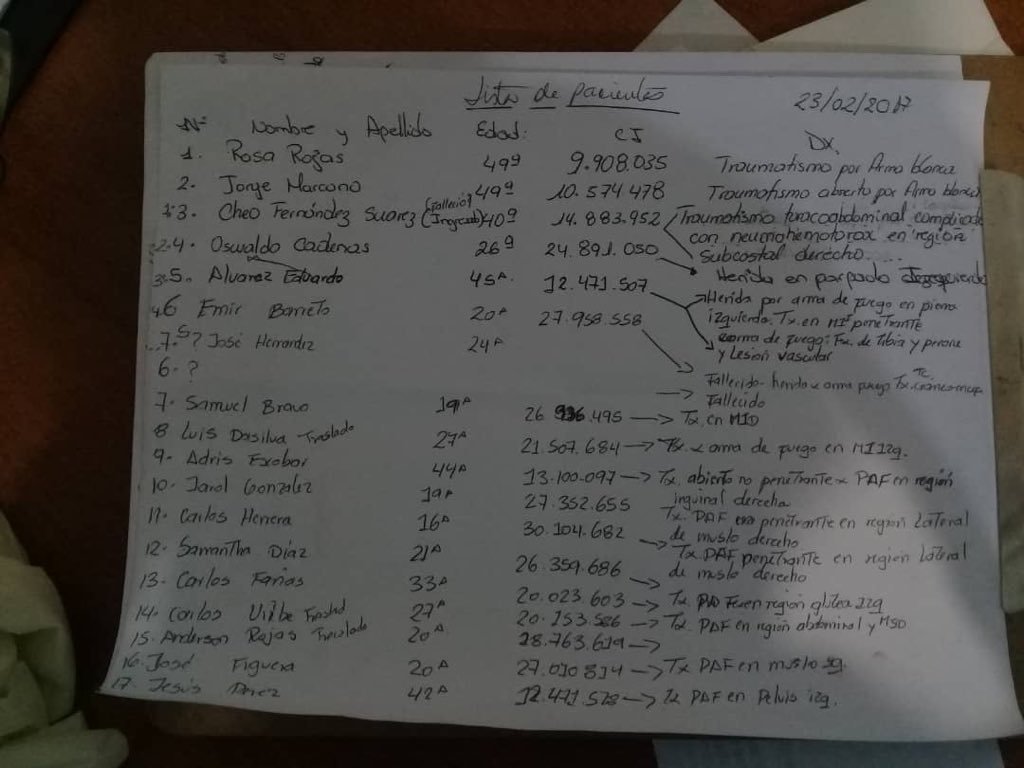 Lista de pacientes 23/02/2017
Nº Nombre y Apellido Edad: CI DX
1. Rosa Rojas 49a 9.908.035 Traumatismo por Arma blanca
2. Jorge Marcano 49a 10.574.478 Traumatismo abierto por Arma blanca
3. Cheo Fernández Suarez (Falleció) (Ingresado) 40a 14.883.952 Traumatismo toracoabdominal complicado
con neumohemotorax en región
subcostal derecho....
2.4. Oswaldo Cadenas 26a 24.891.050 Herida en parpado
3.5. Alvarez Eduardo 45A 12.471.507 Herida por arma de fuego en pierna
izquierda. Tx. en MI penetrante
4.6 Emir Barreto 20A 27.958.558 arma de fuego: Fx. de Tibia y perone
y Lesión vascular
7.5? José Hernandez 24A Fallecido herido x arma fuego Tx.
6. ? Fallecido
7. Samuel Bravo 19A 26. .495 → Tx. en MID
8 Luis Dasilva Traslado 27A 21.507.684 → Tx. x arma de fuego en MI Izq.
9. Adris Escobar 44A 13.100.097 → Tx. abierto no penetrante x PAF en región
inguinal derecha
10. Jarol Gonzalez 19A 27.352.655 Tx. PAF penetrante en region Lateral
de muslo derecho
11. Carlos Herrera 16A 30.104.682 → Tx. PAF penetrante en region Lateral
de muslo derecho
12. Samantha Díaz 21A 26.359.686 →
13. Carlos Farias 33A 20.023.603 → Tx. PAF en región glútea izq
14. Carlos Uribe 27A 20.153.586 → Tx. PAF en región abdominal y MSD
15. Anderson Rojas Traslado 20A 28.763.619 →
16. José Figuera 20A 27.010.814 → Tx PAF en muslo izq.
17. Jesús Perez 42A 12.471.528 → Tx PAF en Pelvis izq.